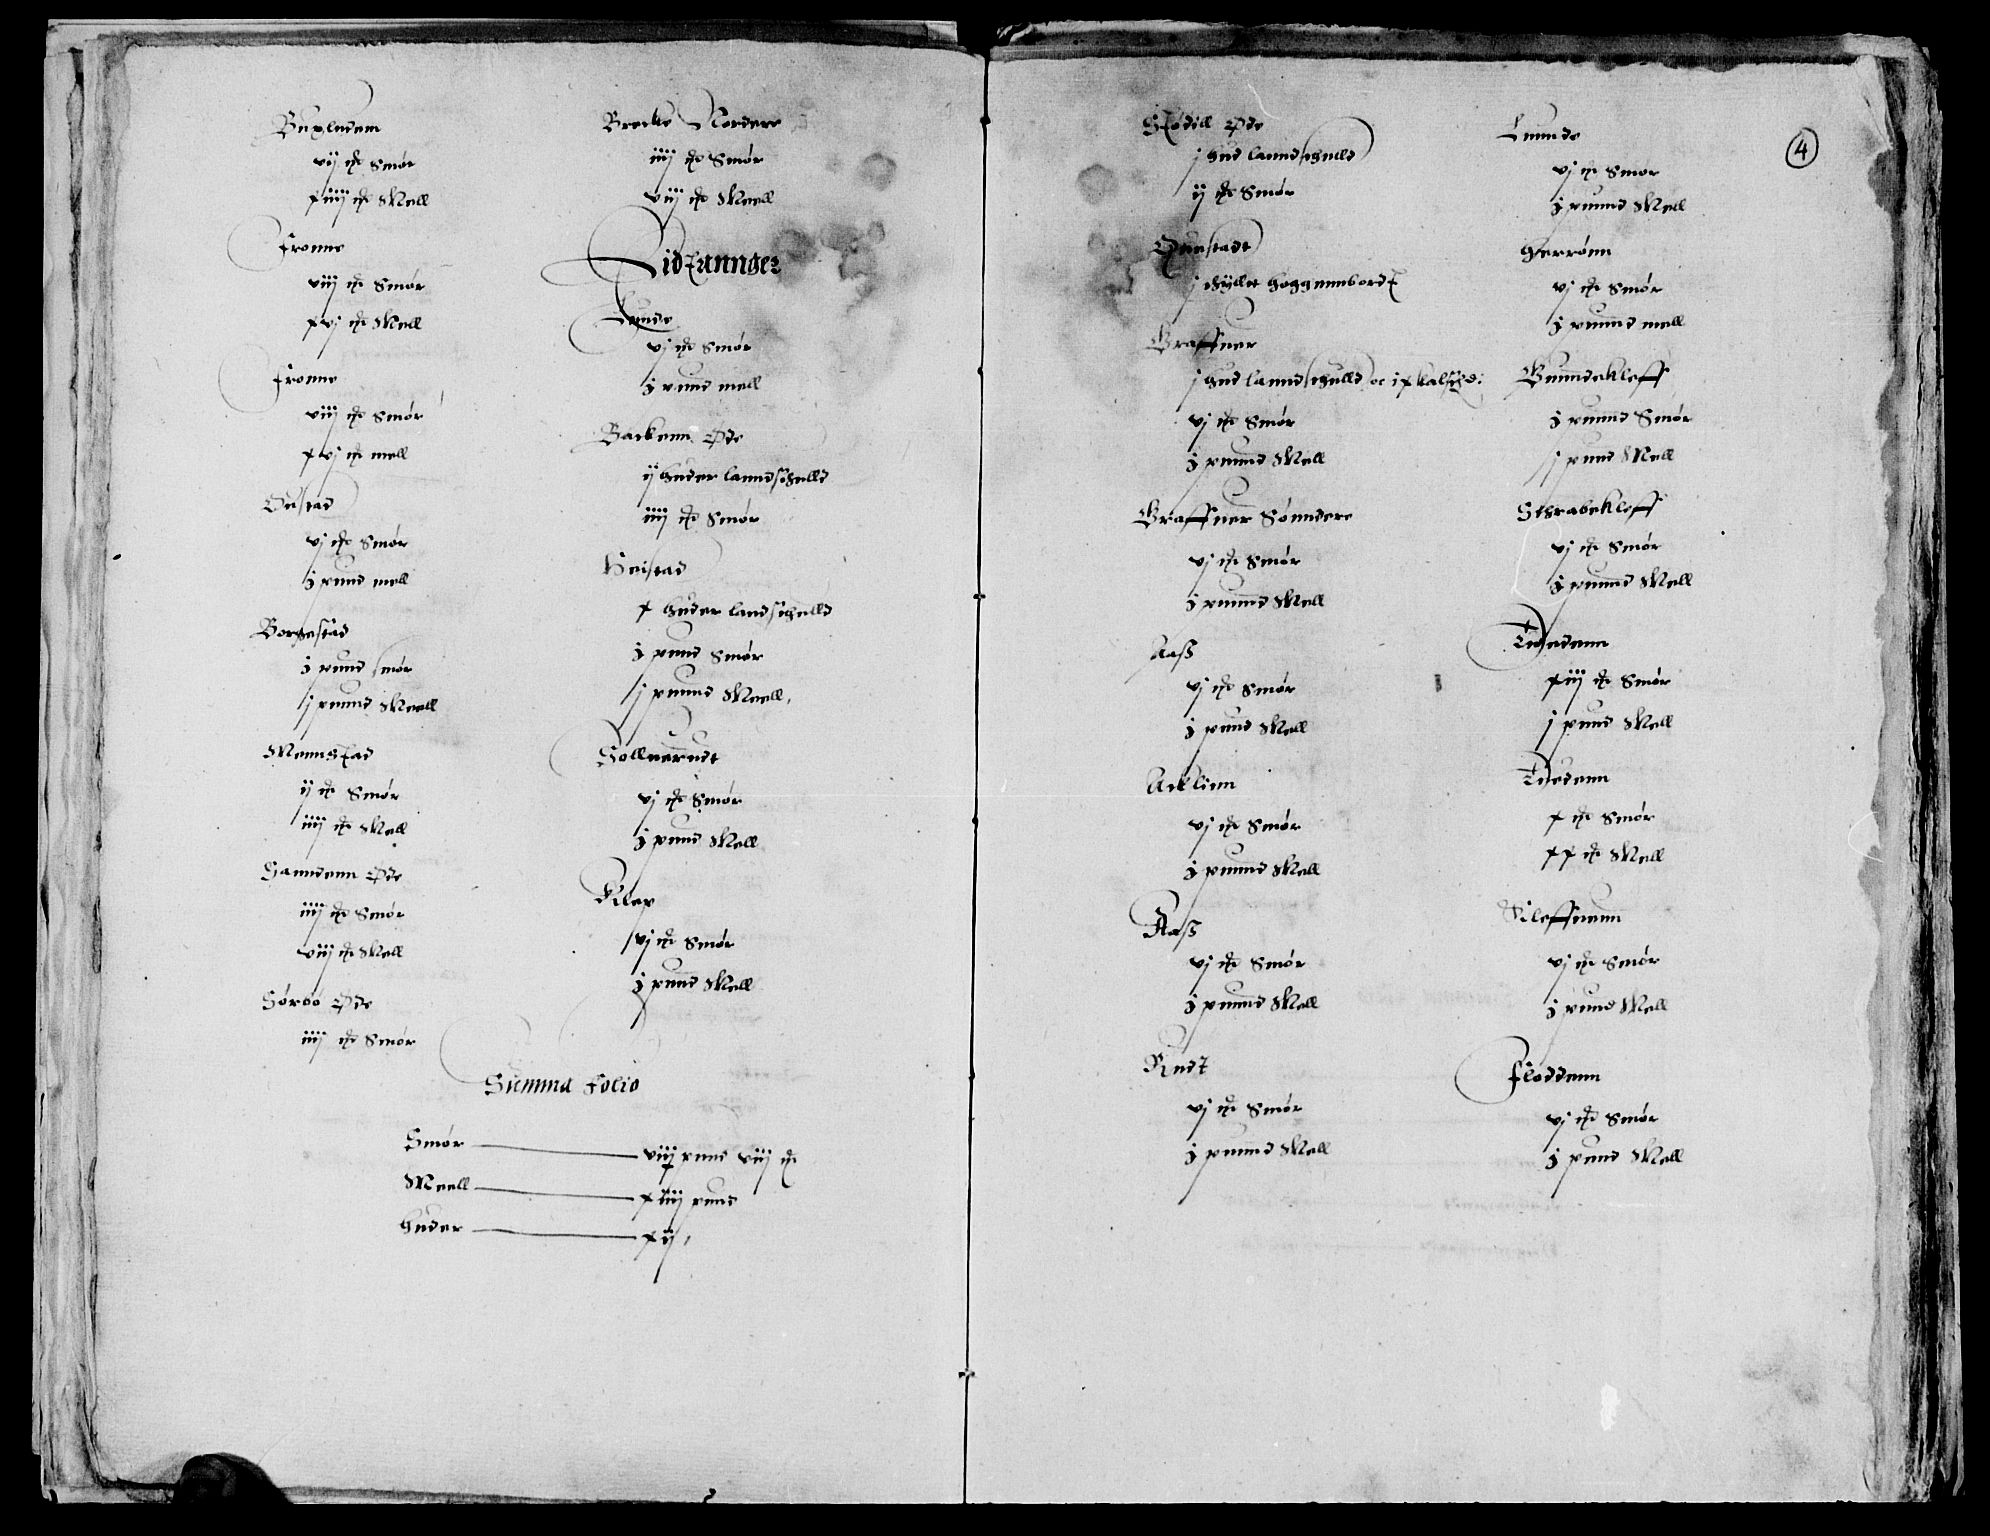 Buxledem
vij ℔ Smør
xiiij ℔ Mell
Fronne
viij ℔ Smør
xvj ℔ Mell
Fronne
viij ℔ Smør
xvj ℔ mell
Oustad
vj ℔ Smør
j pund mell
Borgestad
j pund smør
j pund Meell
Mennstad
ij ℔ Smør
iiij ℔ Mell
Sanndenn Øde
iiij ℔ Smør
viij ℔ Mell
Sørbø Øde
iiij ℔ Smør
Brecke Nordere
iiij ℔ Smør
viij ℔ Meell
Eidannger
Lunde
vj ℔ Smør
j pund mell
Backenn Øde
ij huder lanndschylld
iiij ℔ Smør
Heistad
x huder landschylld
j pund Smør
j pund Meell
Solluerudt
vj ℔ Smør
j pund Mell
Klep
vj ℔ Smør
j pund Mell
Summa folio
Smør viij pund viij ℔
Meell xiij pund
Huder xij
Skødill Øde
j hud lanndschylld
ij ℔ Smør
Ønstadt
j thyllt hoggennbord
Graffner
j hud lanndschulld oc j kalfsk:
vj ℔ Smør
j pund Mell
Graffner Sønndere
vj ℔ Smør
j pund Mell
Aaß
vj ℔ Smør
j pund Mell
Acklinn
vj ℔ Smør
j pund Mell
Aaß
vj ℔ Smør
j pund Mell
Rudt
vj ℔ Smør
j pund Mell
4
Lunnde
vj ℔ Smør
j pund Mell
Gerrønn
vj ℔ Smør
j pund mell
Bunndekleff
j pund Smør
j pund Mell
Skrabekleff
vj ℔ Smør
j pund Mell
Tuedenn
xiij ℔ Smør
j pund Mell
Tuedenn
x ℔ Smør
xx ℔ Mell
Kleffuenn
vj ℔ Smør
j pund Mell
Floddenn
vj ℔ Smør
j pund Mell